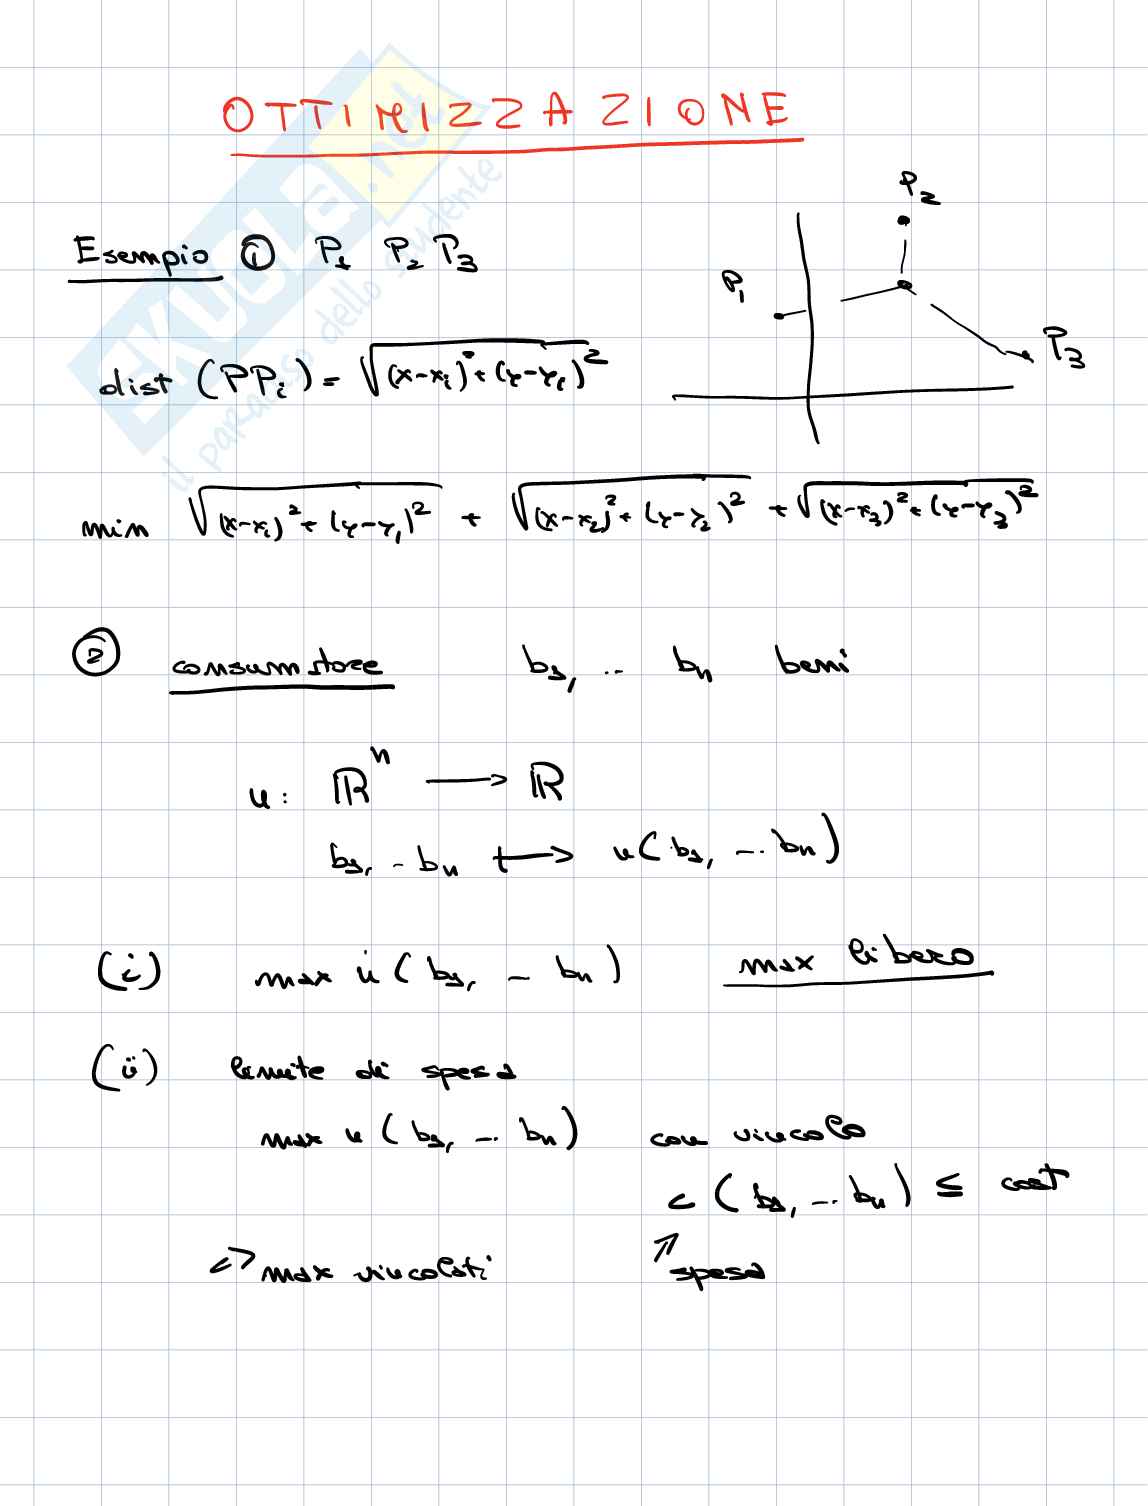 OTTIMIZZAZIONE
SKUOLA.net
il paradiso dello studente
Esempio ① P₁ P₂ P₃
P₂
P₁
P₃
dist (PPᵢ) = √(x-xᵢ)² + (y-yᵢ)²
min √(x-x₁)² + (y-y₁)² + √(x-x₂)² + (y-y₂)² + √(x-x₃)² + (y-y₃)²
② consumatore b₁, .. bₙ beni
u: ℝⁿ → ℝ
b₁, - bₙ ↦ u(b₁, -.. bₙ)
(i) max u (b₁, - bₙ) max libero
(ii) limite di spesa
max u (b₁, -.. bₙ) con vincolo
c (b₁, -.. bₙ) ≤ cost
↗ spesa
<> max vincolati